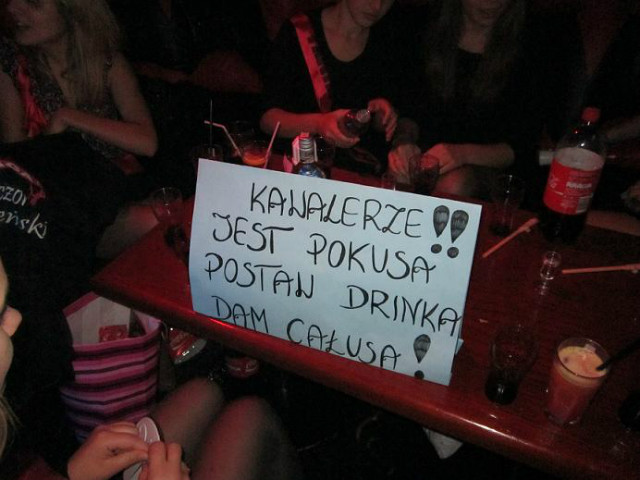 KAWALERZE!!
JEST POKUSA
POSTAW DRINKA
DAM CAŁUSA!